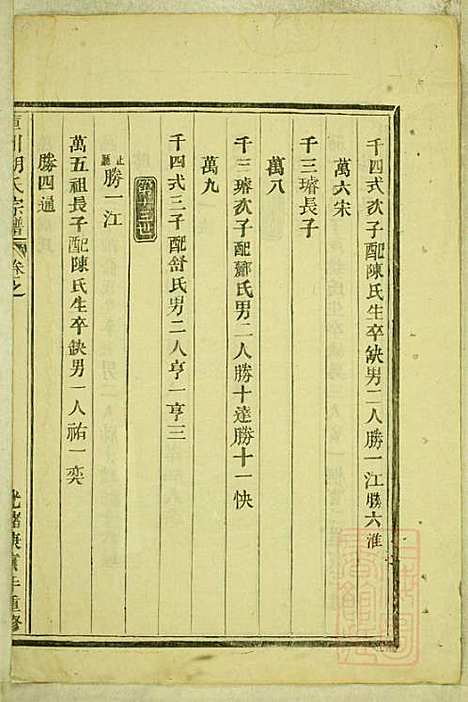 千四式次子配陳氏生卒缺男二人勝一江勝六淮
萬六宋
千三璿長子
萬八
千三璿次子配鄺氏男二人勝十達勝十一快
萬九
千四式三子配舒氏男二人亨一亨三
三世
止廳 勝一江
萬五祖長子配陳氏生卒缺男一人祐一奕
勝四通
川胡氏宗譜 卷之
光緒庚寅年重修